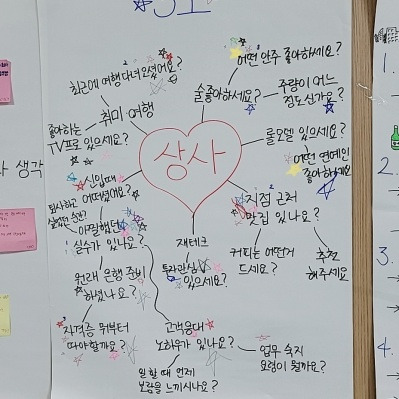 최근에 여행 다녀오셨어요?
취미 여행
좋아하는
TV프로 있으세요?
술좋아하세요?
어떤 안주 좋아하세요?
주량이 어느
정도신가요?
롤모델 있으세요?
어떤 연예인
좋아하세요?
상사
신입때
어떠셨어요?
퇴사하고
싶었던 순간?
아찔했던
실수가 있나요?
원래 은행 준비
하셨나요?
자격증 뭐부터
따야할까요?
재테크
투자관심
있으세요?
지점 근처
맛집 있나요?
커피는 어떤거
드세요?
추천
해주세요
고객응대
노하우가 있나요?
일할 때 언제
보람을 느끼시나요?
업무 숙지
요령이 뭘까요?
생각
1.
2.
3.
4.